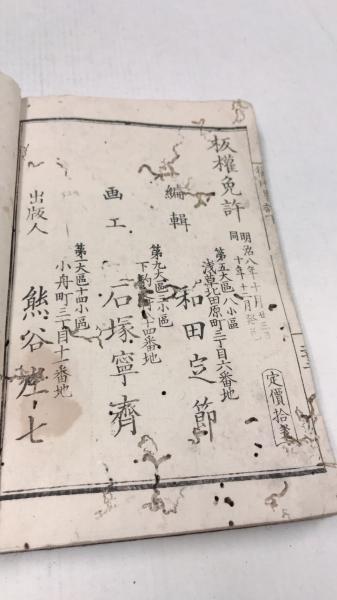 板權免許
明治八年十月廿三日
同 十年十二月
定價拾
第五大區八小區
浅草北田原町三丁目六番地
編輯 和田定節
第九大區三小區
四番地
画工 石塚寧齊
第一大區十四小區
小舟町三丁目十一番地
出版人 熊谷庄七